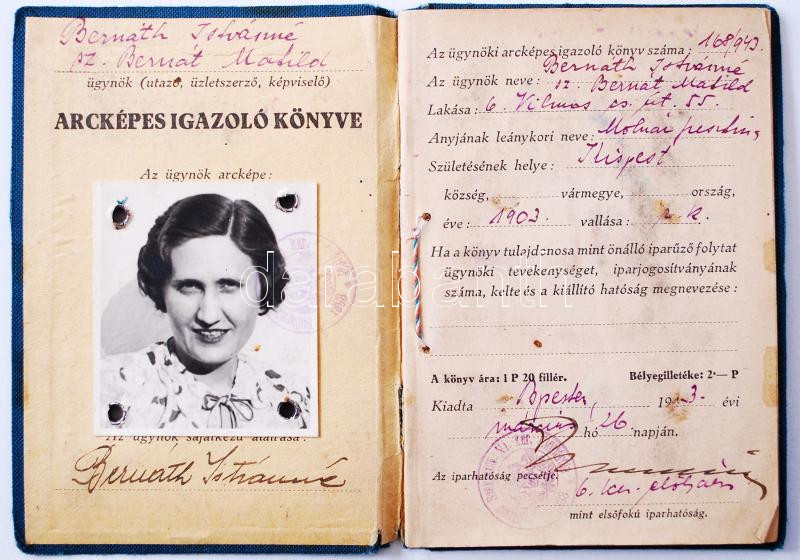 Bernáth Istvánné
sz. Bernát Matild
ügynök (utazó, üzletszerző, képviselő)
ARCKÉPES IGAZOLÓ KÖNYVE
Az ügynök arcképe:
Az ügynök sajátkezű aláírása:
Bernáth Istvánné
Az ügynöki arcképes igazoló könyv száma: 168/943.
Az ügynök neve: Bernáth Istvánné
sz. Bernát Matild
Lakása: 6. Vilmos cs. út. 55.
Anyjának leánykori neve: Molnár
Születésének helye: Kispest
község, vármegye, ország,
éve: 1903 vallása: r. k.
Ha a könyv tulajdonosa mint önálló iparűző folytat
ügynöki tevékenységet, iparjogosítványának
száma, kelte és a kiállító hatóság megnevezése:
A könyv ára: 1 P 20 fillér. Bélyegilletéke: 2·— P
Kiadta Bpesten, 1943. évi
március hó 26 napján.
Az iparhatóság pecsétje.
6. ker. elöljáró
mint elsőfokú iparhatóság.
darabanth